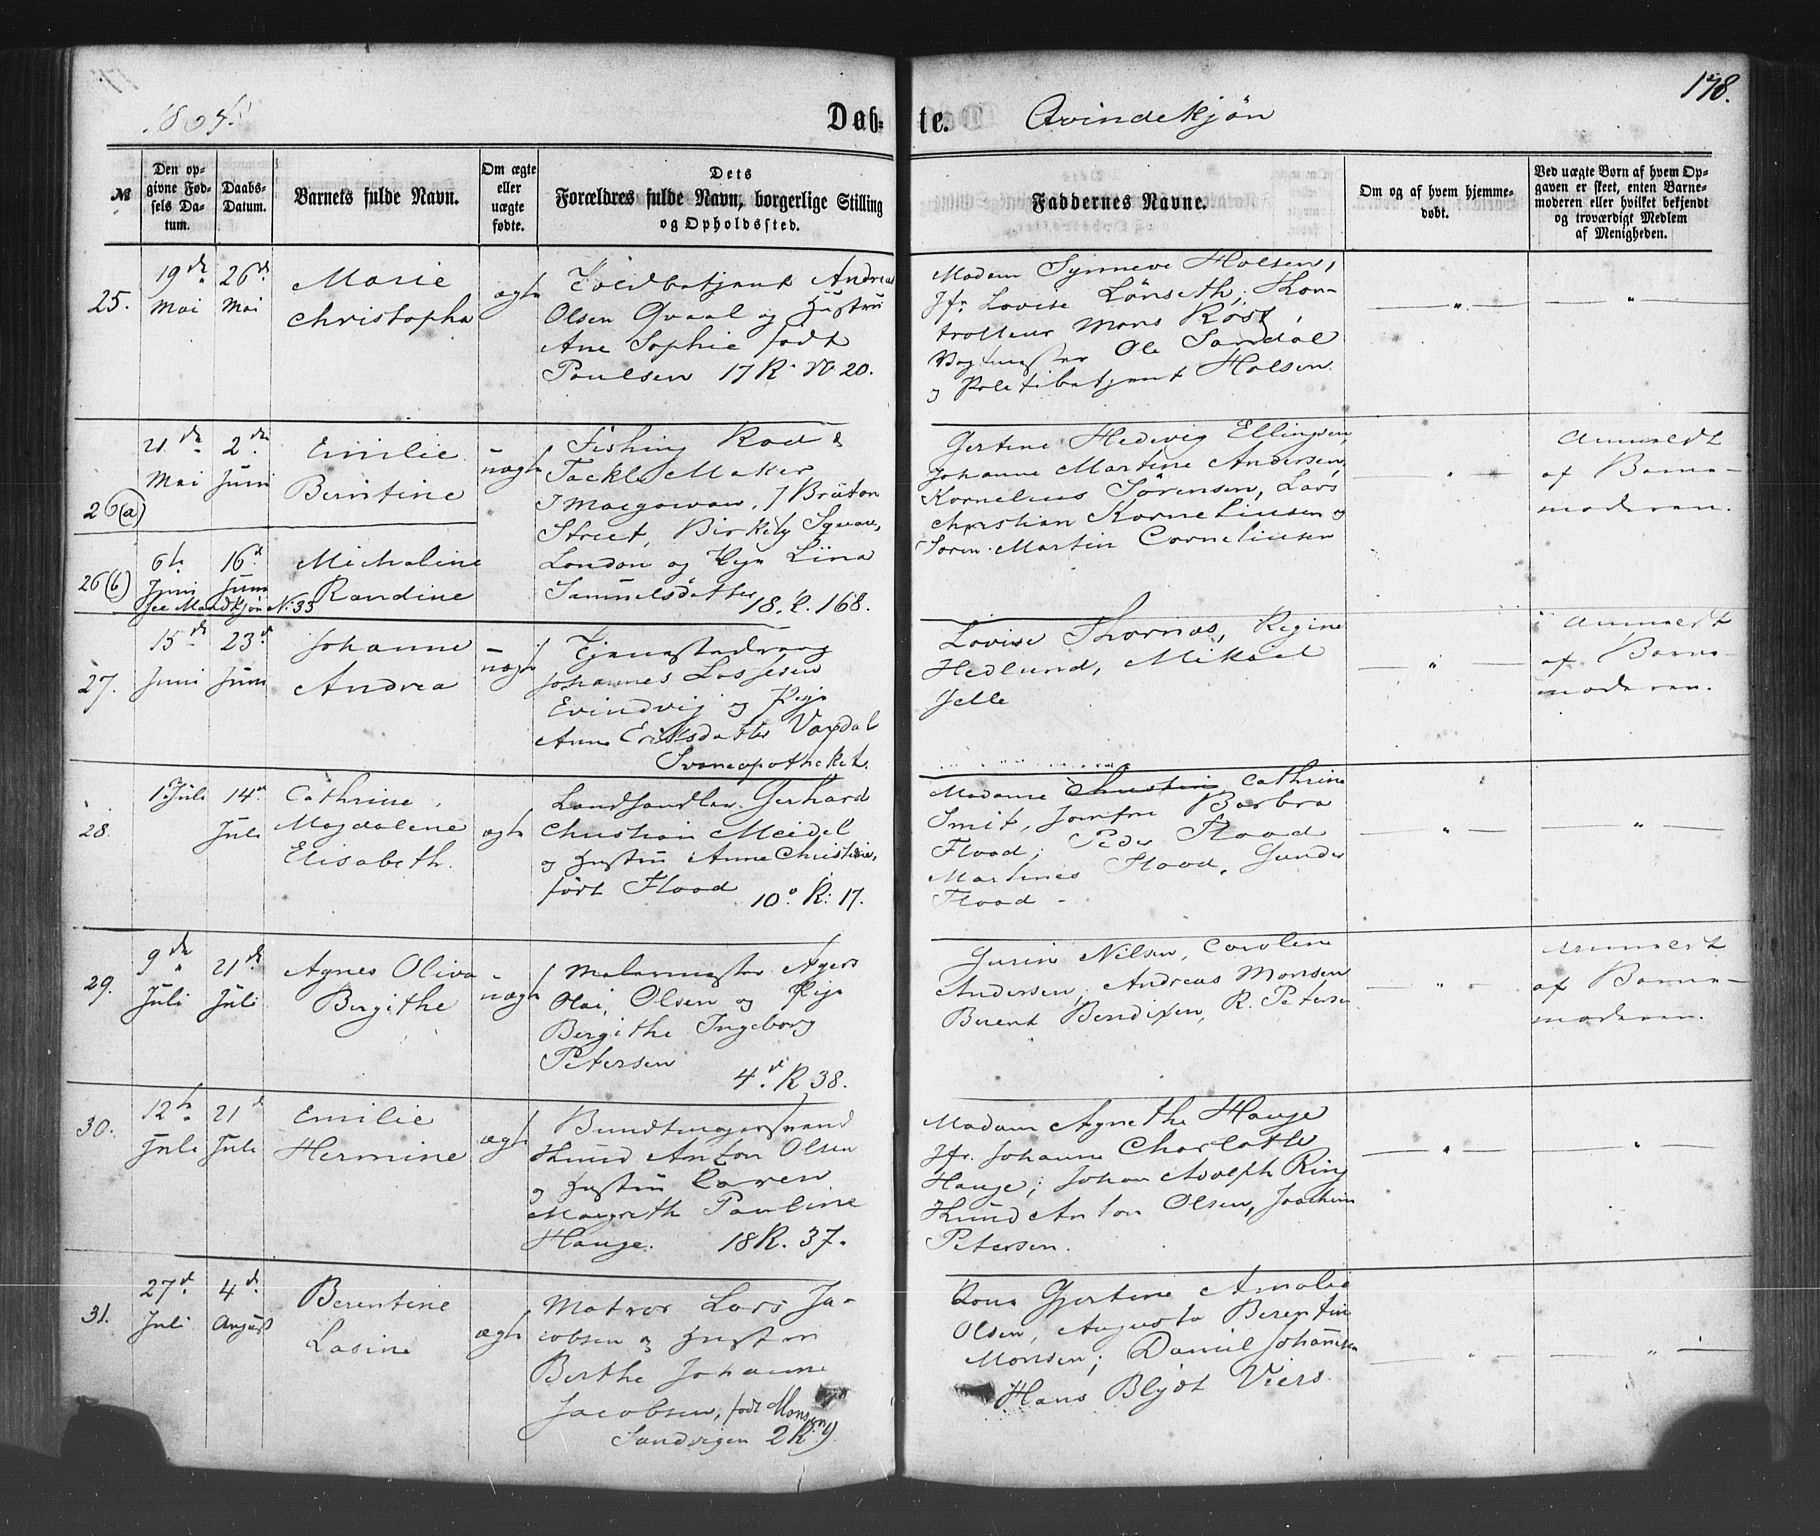 178.
Døb-te. Qvindekjøn
№
Den op-
givne Fød-
sels Da-
tum.
Daabs-
Datum.
Barnets fulde Navn.
Om ægte
eller
uægte
fødte.
Dets
Forældres fulde Navn, borgerlige Stilling
og Opholdssted.
Faddernes Navne.
Om og af hvem hjemme-
døbt.
Ved uægte Børn af hvem Op-
gaven er skeet, enten Barne-
moderen eller hvilket bekjendt
og troværdigt Medlem
af Menigheden.
25.
19de
Mai
26de
Mai
Marie
Christopha
ægte
Toldbetjent Andreas
Olsen Qvaal og Hustru
Ane Sophie født
Poulsen 17 R. N 20.
Madam Synneve Holsen,
Jfr. Lovise Lönseth, Kon-
trolleur Mons Rosg,
Vagtmester Ole Sandal
og Politibetjent Holsen.
26(a)
21de
Mai
2de
Juni
Emilie
Berntine
uægte
Fishing Rod &
Tackle Maker
J Macgowan, 7 Bruton
Street, Birkely Sqvare,
London og Pige Lina
Samuelsdatter
18. R. 168.
Gertine Hedevig Ellingsen,
Johanne Martine Andersen,
Kornelius Sørensen, Lars
Christian Korneliusen og
Søren Martin Corneliusen
Anmeldt
af Barne-
moderen.
26(b)
6te
Juni
16de
Juni
Micholine
Randine
See Mandkjøn N: 33
27.
15de
Juni
23de
Juni
Johanne
Andrea
uægte
Tjenestedreng
Johannes Lassesen
Evindvig og Pige
Anne Eriksdatter Vaxdal
Svaneapotheket.
Lovise Thornæs, Regine
Hedlund, Mikael
Jelle
Anmeldt
af Barne-
moderen.
28.
1 Juli
14de
Juli
Cathrine
Magdalene
Elisabeth.
ægte
Landhandler Gerhard
Christian Meidel
og Hustru Anne Christine,
født Flood 10. R: 17.
Madame Christin Cathrine
Smit, Jomfru Barbra
Flood; Peder Flood
Martines Flood, Gunder
Flood -
29.
9de
Juli
21de
Juli
Agnes Oliva
Bergithe
uægte
Malermester Ager
Olai Olsen og Pige
Bergithe Ingeborg
Petersen
4. R 38.
Gurin Nilsen, Caroline
Andersen, Andreas Monsen
Berent Bendixen, R. Petersen
Anmeldt
af Barne-
moderen.
30.
12te
Juli
21de
Juli
Emilie
Hermine
ægte
Bundtmagersvend
Knud Anton Olsen
og Hustru Karen
Margreth Pauline
Hauge. 18 R. 37.
Madam Agnethe Hauge
Jfr. Johanne Charlotte
Hauge; Johan Adolph Ring
Knud Anton Olsen, Joachim
Petersen.
31.
27de
Juli
4de
August
Berentine
Lasine
ægte
Matros Lars Ja-
cobsen og Hustru
Berthe Johanne
Jacobsen, født Monsen
Sandvigen 2 R. 9
Kone Gjertine Amalie
Olsen, Augusta Berentine
Monsen; Daniel Johannesen
Hans Blydt Viers.